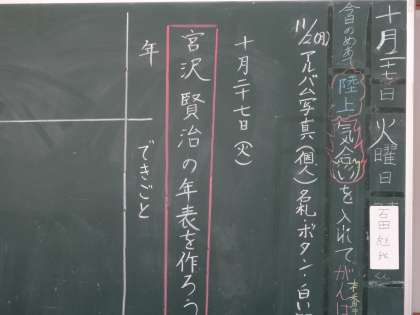 十月二十七日 火曜日
今日のめあて 陸上 気合いを入れてがんば
11/2(月) アルバム写真(個人) 名札・ボタン・白い
十月二十七日(火)
宮沢賢治の年表を作ろう
年 できごと